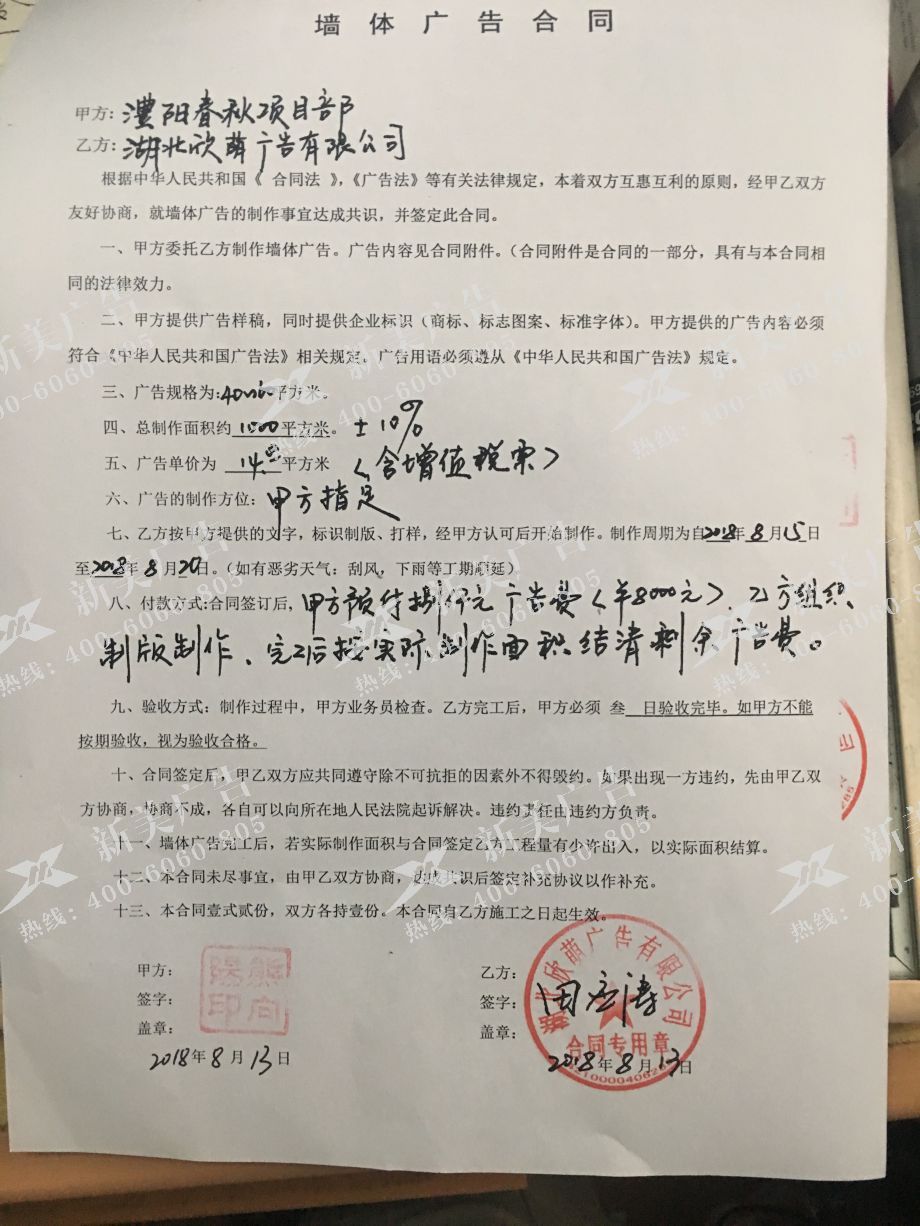 墙体广告合同
甲方：澧阳春秋项目部
乙方：湖北欣萌广告有限公司
根据中华人民共和国《 合同法 》，《广告法》等有关法律规定，本着双方互惠互利的原则，经甲乙双方
友好协商，就墙体广告的制作事宜达成共识，并签定此合同。
一、甲方委托乙方制作墙体广告。广告内容见合同附件。（合同附件是合同的一部分，具有与本合同相
同的法律效力。
二、甲方提供广告样稿，同时提供企业标识（商标、标志图案、标准字体）。甲方提供的广告内容必须
符合《中华人民共和国广告法》相关规定，广告用语必须遵从《中华人民共和国广告法》规定。
三、广告规格为:平方米。
四、总制作面积约 1000 平方米。±10%
五、广告单价为 14 平方米（含增值税票）
六、广告的制作方位：甲方指定
七、乙方按甲方提供的文字，标识制版、打样，经甲方认可后开始制作。制作周期为自2018年8月15日
至2018年8月20日。（如有恶劣天气：刮风，下雨等工期顺延）
八、付款方式:合同签订后，甲方预付捌仟元广告费（￥8000元）、乙方组织
制版制作、完工后按实际制作面积结清剩余广告费。
九、验收方式：制作过程中，甲方业务员检查。乙方完工后，甲方必须 叁 日验收完毕。如甲方不能
按期验收，视为验收合格。
十、合同签定后，甲乙双方应共同遵守除不可抗拒的因素外不得毁约。如果出现一方违约，先由甲乙双
方协商，协商不成，各自可以向所在地人民法院起诉解决。违约责任由违约方负责。
十一、墙体广告完工后，若实际制作面积与合同签定乙方工程量有少许出入，以实际面积结算。
十二、本合同未尽事宜，由甲乙双方协商，达成共识后签定补充协议以作补充。
十三、本合同壹式贰份，双方各持壹份。本合同自乙方施工之日起生效。
甲方：
签字：
盖章：
2018年8月13日
乙方：
签字：田应涛
盖章：
2018年8月13日
湖北欣萌广告有限公司
合同专用章
新美广告
热线：400-6060-805